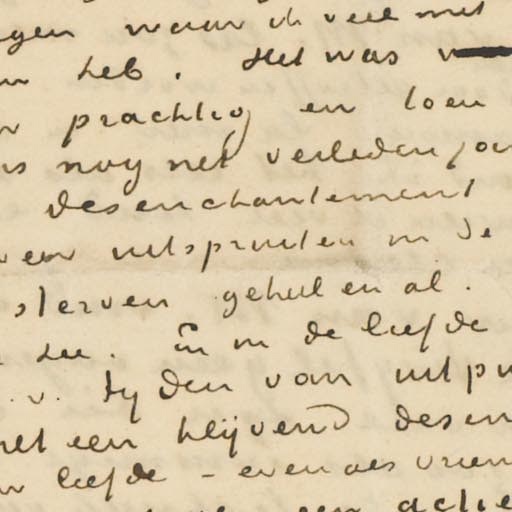 gen waar ik veel met
heb. Het was
prachtig en toen
nog net verleden jaar
desenchantement
uitspruiten in de
sterven geheel en al.
in de liefde
. v. tijden van uitpu
met een blijvend desen
liefde - evenals vrien
een actie